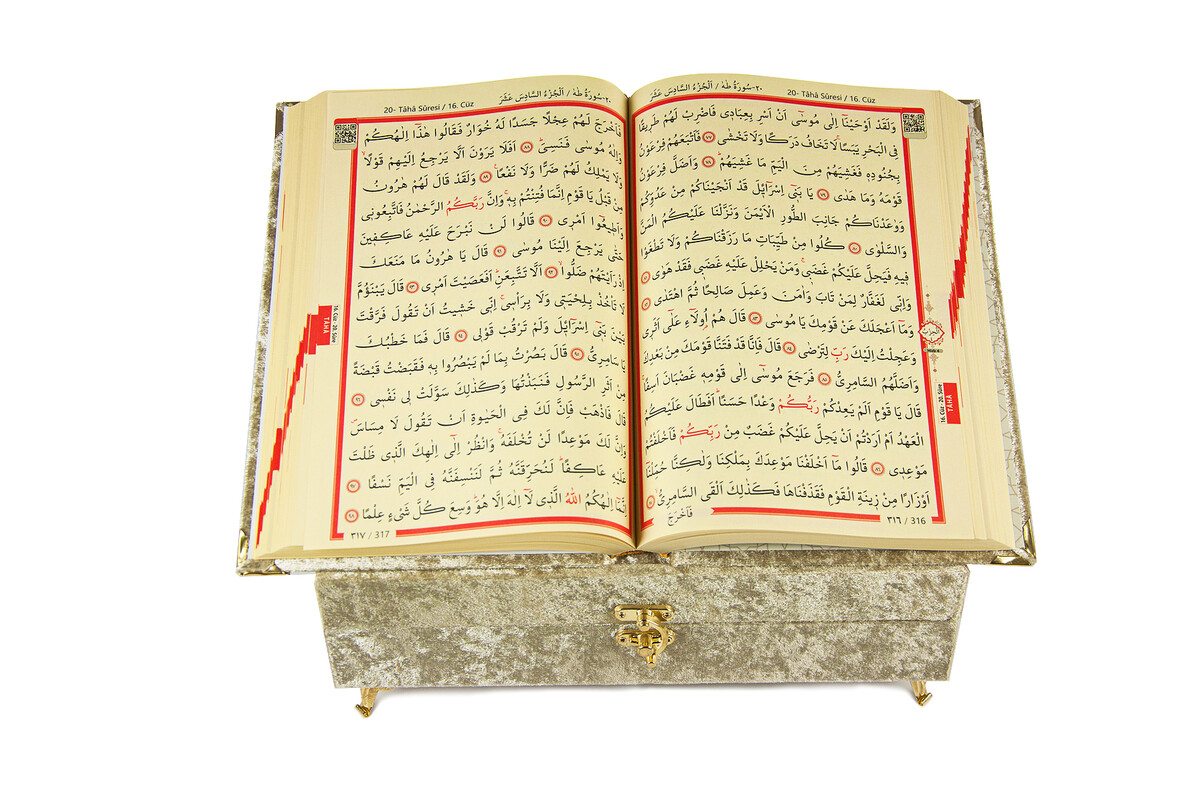 ٢٠-سُورَةُ طٰهٰ / اَلْجُزْءُ السَّادِسَ عَشَرَ
20- Tâhâ Sûresi / 16. Cüz
وَلَقَدْ اَوْحَيْنَٓا اِلٰى مُوسٰٓى اَنْ اَسْرِ بِعِبَادٖى فَاضْرِبْ لَهُمْ طَرٖيقًا
فِى الْبَحْرِ يَبَسًاۙ لَا تَخَافُ دَرَكًا وَلَا تَخْشٰى ﴿٧٧﴾ فَاَتْبَعَهُمْ فِرْعَوْنُ
بِجُنُودِهٖ فَغَشِيَهُمْ مِنَ الْيَمِّ مَا غَشِيَهُمْؕ ﴿٧٨﴾ وَاَضَلَّ فِرْعَوْنُ
قَوْمَهُ وَمَا هَدٰى ﴿٧٩﴾ يَا بَنٖٓى اِسْرَٓائٖلَ قَدْ اَنْجَيْنَاكُمْ مِنْ عَدُوِّكُمْ
وَوٰعَدْنَاكُمْ جَانِبَ الطُّورِ الْاَيْمَنَ وَنَزَّلْنَا عَلَيْكُمُ الْمَنَّ
وَالسَّلْوٰى ﴿٨٠﴾ كُلُوا مِنْ طَيِّبَاتِ مَا رَزَقْنَاكُمْ وَلَا تَطْغَوْا
فٖيهِ فَيَحِلَّ عَلَيْكُمْ غَضَبٖىۚ وَمَنْ يَحْلِلْ عَلَيْهِ غَضَبٖى فَقَدْ هَوٰى ﴿٨١﴾
وَاِنّٖى لَغَفَّارٌ لِمَنْ تَابَ وَاٰمَنَ وَعَمِلَ صَالِحًا ثُمَّ اهْتَدٰى ﴿٨٢﴾
وَمَٓا اَعْجَلَكَ عَنْ قَوْمِكَ يَا مُوسٰى ﴿٨٣﴾ قَالَ هُمْ اُو۬لَٓاءِ عَلٰٓى اَثَرٖى
وَعَجِلْتُ اِلَيْكَ رَبِّ لِتَرْضٰى ﴿٨٤﴾ قَالَ فَاِنَّا قَدْ فَتَنَّا قَوْمَكَ مِنْ بَعْدِكَ
وَاَضَلَّهُمُ السَّامِرِىُّ ﴿٨٥﴾ فَرَجَعَ مُوسٰٓى اِلٰى قَوْمِهٖ غَضْبَانَ اَسِفًاۚ
قَالَ يَا قَوْمِ اَلَمْ يَعِدْكُمْ رَبُّكُمْ وَعْدًا حَسَنًاؕ اَفَطَالَ عَلَيْكُمُ
الْعَهْدُ اَمْ اَرَدْتُمْ اَنْ يَحِلَّ عَلَيْكُمْ غَضَبٌ مِنْ رَبِّكُمْ فَاَخْلَفْتُمْ
مَوْعِدٖى ﴿٨٦﴾ قَالُوا مَٓا اَخْلَفْنَا مَوْعِدَكَ بِمَلْكِنَا وَلٰكِنَّا حُمِّلْنَٓا
اَوْزَارًا مِنْ زٖينَةِ الْقَوْمِ فَقَذَفْنَاهَا فَكَذٰلِكَ اَلْقَى السَّامِرِىُّۙ ﴿٨٧﴾
فَاَخْرَجَ
٣١٦ / 316
16. Cüz - 20. Sûre
TÂHÂ
٢٠-سُورَةُ طٰهٰ / اَلْجُزْءُ السَّادِسَ عَشَرَ
20- Tâhâ Sûresi / 16. Cüz
فَاَخْرَجَ لَهُمْ عِجْلًا جَسَدًا لَهُ خُوَارٌ فَقَالُوا هٰذَٓا اِلٰهُكُمْ
وَاِلٰهُ مُوسٰى فَنَسِىَؕ ﴿٨٨﴾ اَفَلَا يَرَوْنَ اَلَّا يَرْجِعُ اِلَيْهِمْ قَوْلًاۙ
وَلَا يَمْلِكُ لَهُمْ ضَرًّا وَلَا نَفْعًا۟ ﴿٨٩﴾ وَلَقَدْ قَالَ لَهُمْ هٰرُونُ
مِنْ قَبْلُ يَا قَوْمِ اِنَّمَا فُتِنْتُمْ بِهٖۚ وَاِنَّ رَبَّكُمُ الرَّحْمٰنُ فَاتَّبِعُونٖى
وَاَطٖيعُٓوا اَمْرٖى ﴿٩٠﴾ قَالُوا لَنْ نَبْرَحَ عَلَيْهِ عَاكِفٖينَ
حَتّٰى يَرْجِعَ اِلَيْنَا مُوسٰى ﴿٩١﴾ قَالَ يَا هٰرُونُ مَا مَنَعَكَ
اِذْ رَاَيْتَهُمْ ضَلُّواۙ ﴿٩٢﴾ اَلَّا تَتَّبِعَنِؕ اَفَعَصَيْتَ اَمْرٖى ﴿٩٣﴾ قَالَ يَبْنَؤُمَّ
لَا تَأْخُذْ بِلِحْيَتٖى وَلَا بِرَأْسٖىۚ اِنّٖى خَشٖيتُ اَنْ تَقُولَ فَرَّقْتَ
بَيْنَ بَنٖٓى اِسْرَٓائٖلَ وَلَمْ تَرْقُبْ قَوْلٖى ﴿٩٤﴾ قَالَ فَمَا خَطْبُكَ
يَا سَامِرِىُّ ﴿٩٥﴾ قَالَ بَصُرْتُ بِمَا لَمْ يَبْصُرُوا بِهٖ فَقَبَضْتُ قَبْضَةً
مِنْ اَثَرِ الرَّسُولِ فَنَبَذْتُهَا وَكَذٰلِكَ سَوَّلَتْ لٖى نَفْسٖى ﴿٩٦﴾
قَالَ فَاذْهَبْ فَاِنَّ لَكَ فِى الْحَيٰوةِ اَنْ تَقُولَ لَا مِسَاسَࣕ
وَاِنَّ لَكَ مَوْعِدًا لَنْ تُخْلَفَهُۚ وَانْظُرْ اِلٰٓى اِلٰهِكَ الَّذٖى ظَلْتَ
عَلَيْهِ عَاكِفًاؕ لَنُحَرِّقَنَّهُ ثُمَّ لَنَنْسِفَنَّهُ فِى الْيَمِّ نَسْفًا ﴿٩٧﴾
اِنَّمَٓا اِلٰهُكُمُ اللّٰهُ الَّذٖى لَٓا اِلٰهَ اِلَّا هُوَؕ وَسِعَ كُلَّ شَىْءٍ عِلْمًا ﴿٩٨﴾
٣١٧ / 317
16. Cüz - 20. Sûre
TÂHÂ